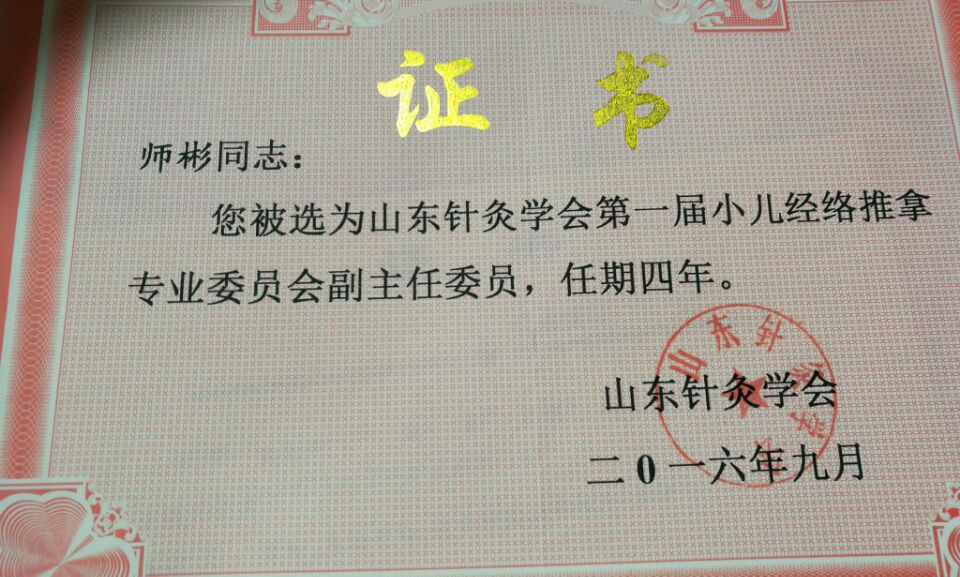 证书
师彬同志：
您被选为山东针灸学会第一届小儿经络推拿
专业委员会副主任委员，任期四年。
山东针灸学会
山东针灸学会
二0一六年九月